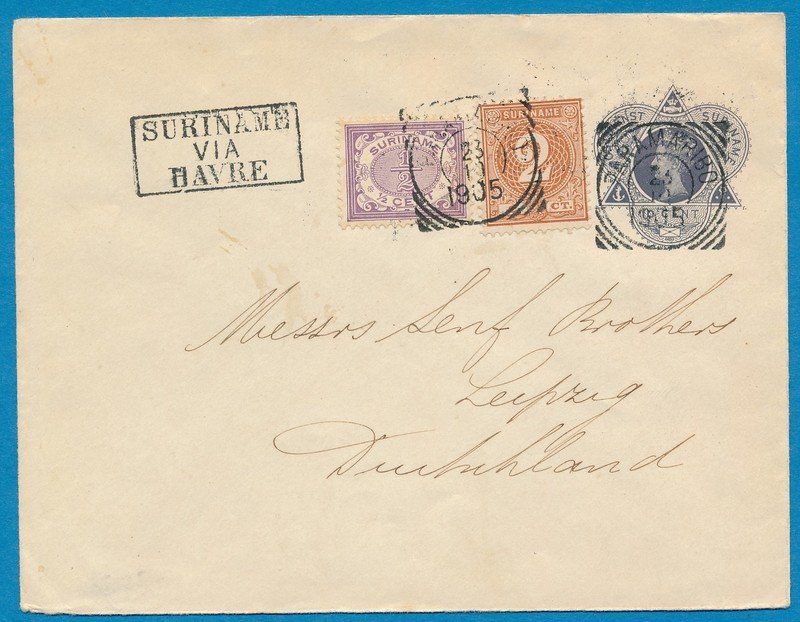 SURINAME
VIA
HAVRE
SURINAME
1/2
½ CE
23
1905
SURINAME
2
CT.
SURINAME
PARAMARIBO
23
CENT
Messrs Senf Brothers
Leipzig
Deutschland